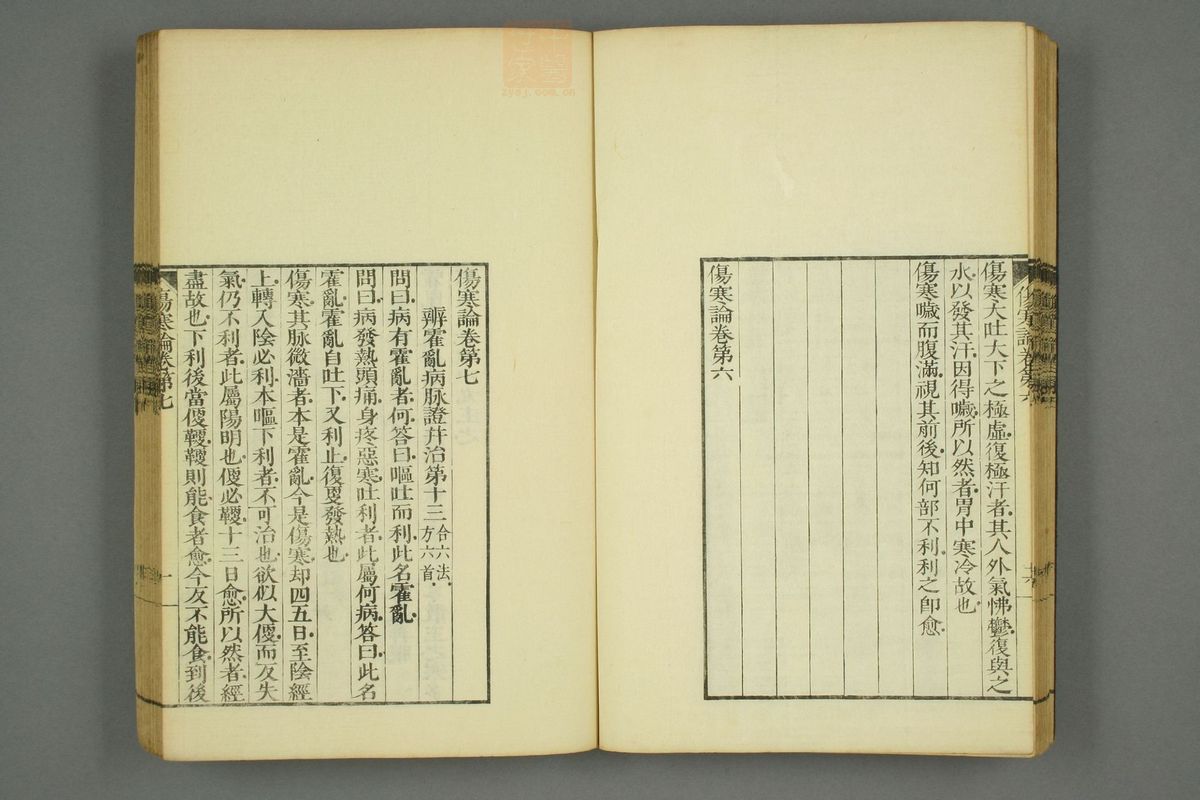 傷寒大吐大下之極虛復極汗者其人外氣怫鬱復與之
水以發其汗因得噦所以然者胃中寒冷故也
傷寒噦而腹滿視其前後知何部不利利之卽愈
傷寒論卷第六
傷寒論卷第七
辨霍亂病脉證幷治第十三 合六法 方六首
問曰病有霍亂者何答曰嘔吐而利此名霍亂
問曰病發熱頭痛身疼惡寒吐利者此屬何病答曰此名
霍亂霍亂自吐下又利止復更發熱也
傷寒其脉微濇者本是霍亂今是傷寒却四五日至陰經
上轉入陰必利本嘔下利者不可治也欲似大便而反失
氣仍不利者此屬陽明也便必鞕十三日愈所以然者經
盡故也下利後當便鞕鞕則能食者愈今反不能食到後
傷寒論卷第七
一
zydj.com.cn